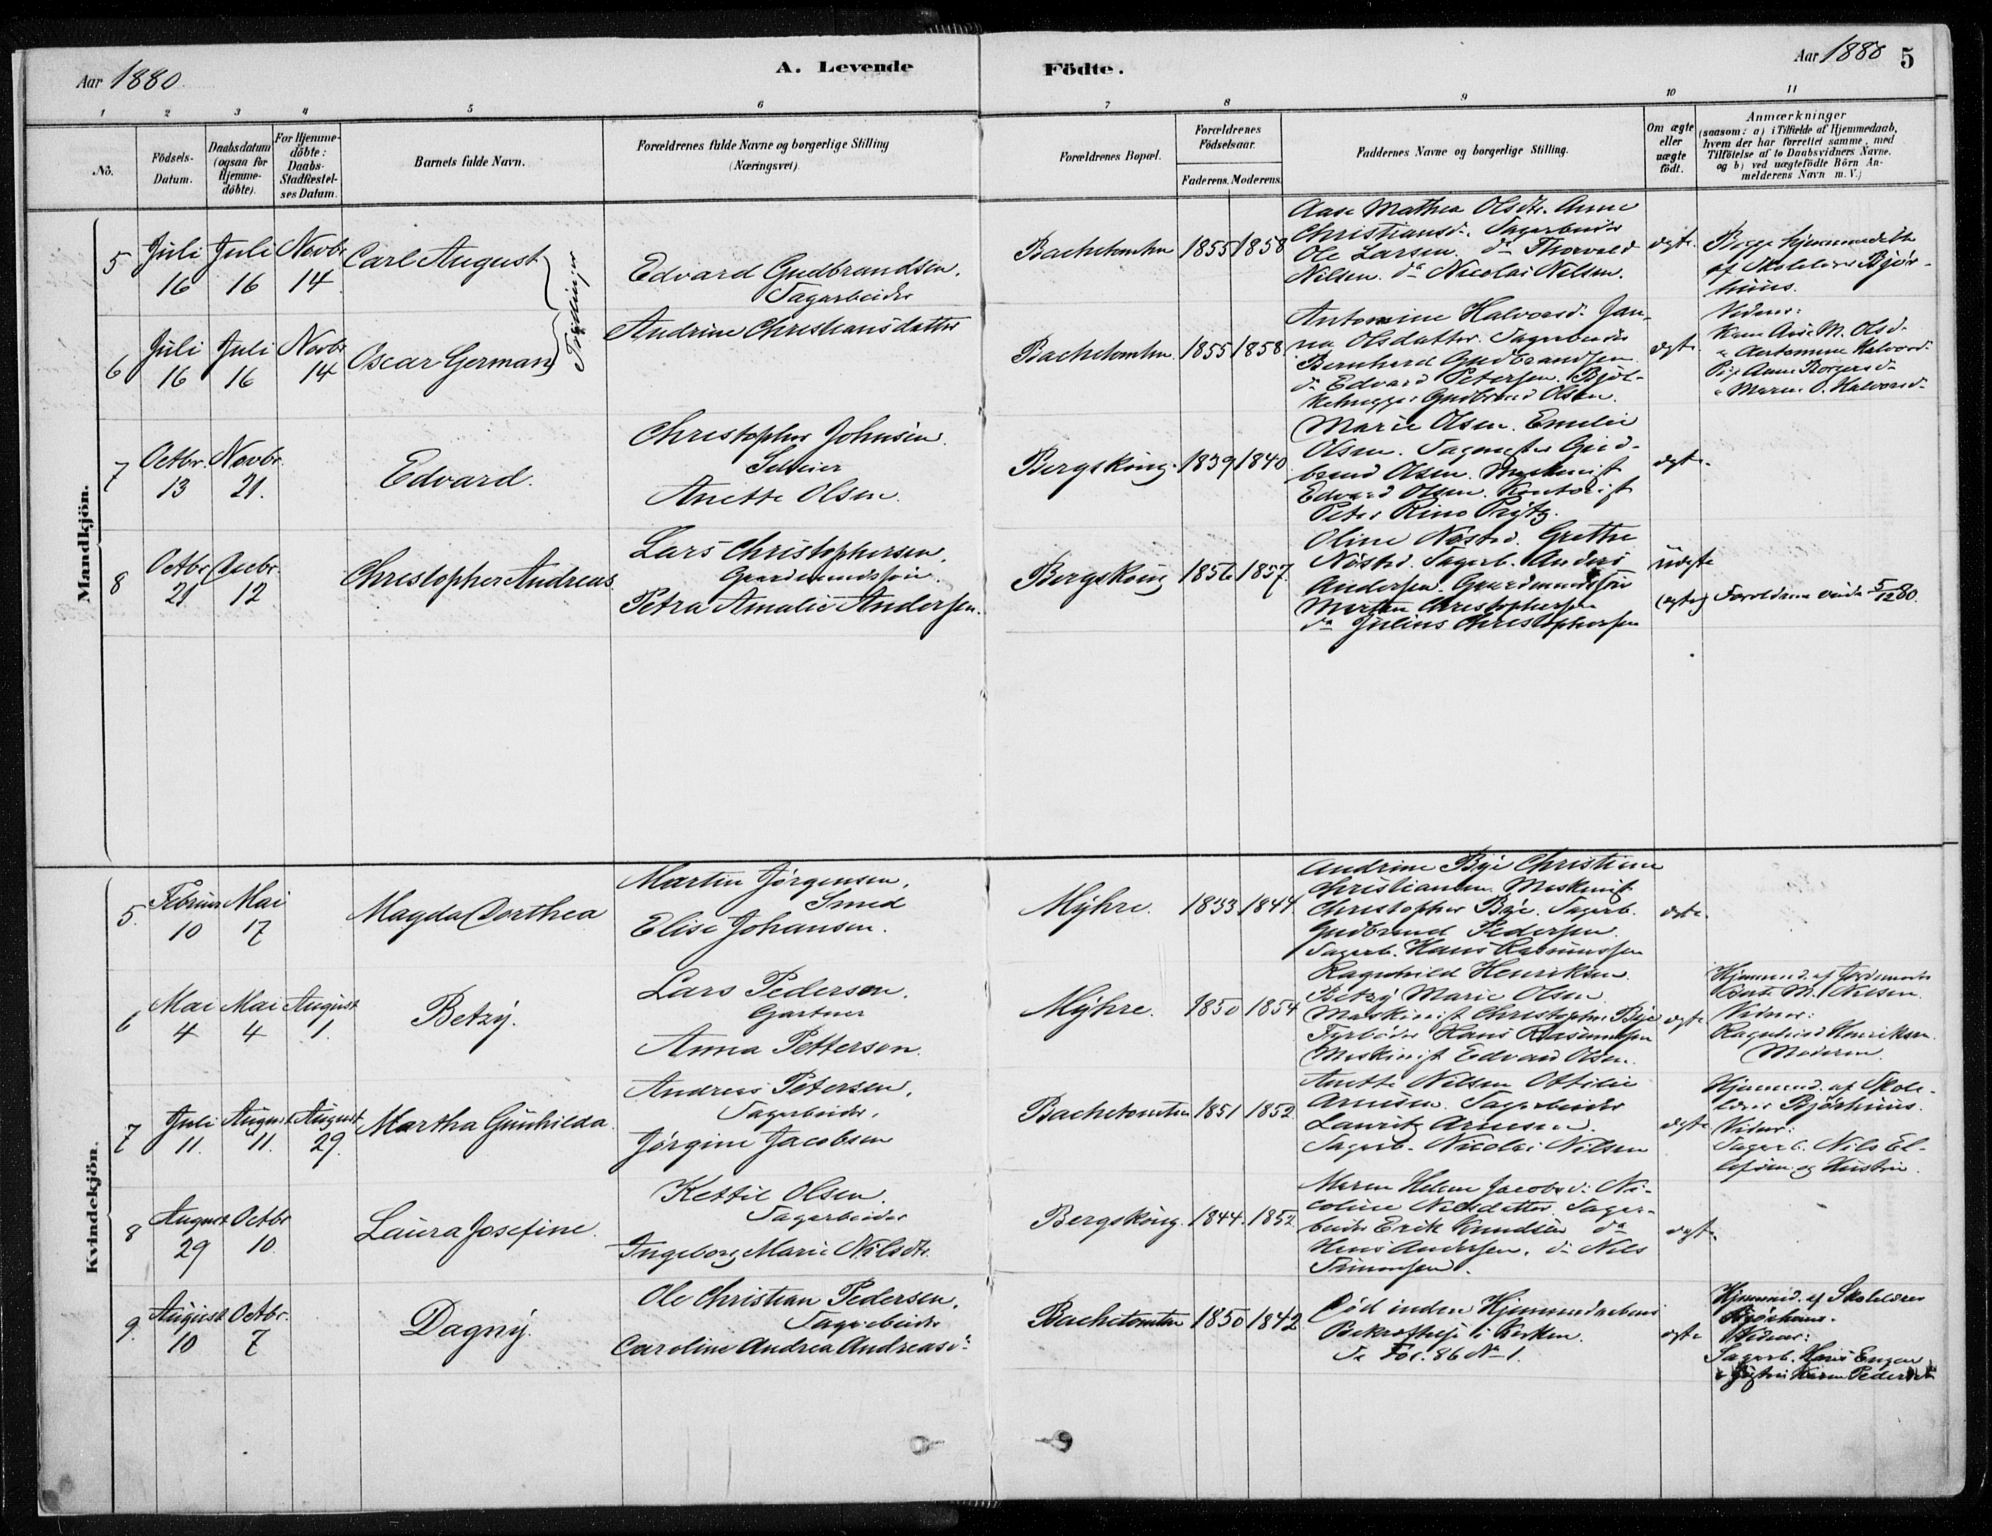 Aar 1880.
A. Levende Födte.
Aar 1880
5
1 2 3 4 5 6 7 8 9 10 11
No.
Födsels-Datum.
Daabsdatum (ogsaa for Hjemme-döbte).
For Hjemme-döbte: Daabs-Stadfæstel-ses Datum.
Barnets fulde Navn.
Forældrenes fulde Navne og borgerlige Stilling (Næringsvei).
Forældrenes Bopæl.
Forældrenes Födselsaar.
Faderens. Moderens.
Faddernes Navne og borgerlige Stilling.
Om ægte eller uægte födt.
Anmærkninger
(saasom: a) i Tilfælde af Hjemmedaab,
hvem der har forrettet samme, med
Tilföielse af to Daabsvidners Navne.
og b) ved uægtefödte Börn An-
melderens Navn m. V.)
Mandkjön.
5
Juli 16
Juli 16
Novbr 14
Carl August
Tvillinger
Edvard Gudbrandsen.
Sagarbeider
Andrine Christiansdatter
Bachetomten
1855 1858
Aase Mathea Olsdtr. Anne
Christiansd. Sagarbeider
Ole Larsen. do Thorvald
Nilsen. do Nicolai Nilsen.
ægte.
Begge hjemmedøbte
af Skolelærer Bjør-
huus.
Vidner:
6
Juli 16
Juli 16
Novbr 14
Oscar German
Bachetomten.
1855 1858
Antomine Halvorsd. Jan-
na Olsdatter. Sagarbeider
Bernhard Gudbrandsen.
do Edvard Petersen. Bjel-
kehugger Gudbrand Olsen.
ægte.
Kone Aase M. Olsd.
" Antomine Halvorsd.
Pige Anne Borgersd.
" Maren O. Halvorsd.
7
Octbr. 13
Novbr. 21.
Edvard.
Christopher Johnsen.
Anette Olsen.
Bergskoug.
1839 1840
Marie Olsen. Emelie
Olsen. Sagmester Gud-
brand Olsen. Maskinist
Edvard Olsen. Kontorist
Peter Rino Prÿtz.
ægte.
8
Octbr 21
Decbr. 12
Christopher Andreas.
Lars Christophersen.
Gaardmandssøn.
Petra Amalie Andersen.
Bergskoug
1856 1857.
Oline Nøsted. Grethe
Nøsted. Sagarb. Anders
Andersen. Gaardmandssøn
Morten Christophersen
do Julius Christophersen
uægte
(ægte)
Forældrene viede 5/12 80.
Kvindekjön.
5.
Februar 10
Mai 17
Magda Dorthea
Martin Jørgensen.
Smed
Elise Johansen.
Mÿhre.
1833 1844
Andrine Bÿe Christine
Christiansen. Maskinist
Christopher Bÿe. Sagarb.
Gudbrand Pedersen.
Sagarb. Hans Rasmussen
ægte.
6
Mai 4
Mai 4
August 1.
Betzÿ.
Lars Pederson.
Gartner
Anna Petterson.
Mÿhre.
1850 1854
Ragnhild Henriksen
Betzÿ Marie Olsen
Maskinist Christopher Bÿe
Fyrbøder Hans Rasmussen
Maskinist Edvard Olsen.
ægte
Hjemmed. af Jordemoder
Berte M. Nilsen.
Vidner:
Ragnhild Henriksen.
Moderen.
7
Juli 11.
August 11.
August 29.
Martha Gunhilda.
Andreas Petersen.
Sagarbeider.
Jørgine Jacobsen
Bachetomten
1851 1852.
Anette Nilsen Ottilie
Arnesen. Sagarbeider
Lauritz Arnesen.
Sagarb. Nicolai Nilsen
ægte
Hjemmed. af Skole-
lærer Bjørhuus.
Vidner:
Sagarb. Nils El-
lefsen og Hustru.
8
August 29
Octbr 10.
Laura Josefine.
Kettil Olsen.
Sagarbeider
Ingeborg Marie Nilsdtr.
Bergskoug.
1844. 1852
Maren Helene Jacobsd. Ni-
coline Nilsdatter. Sagar-
beider Erik Knudsen do
Hans Andersen. do Nils
Simonsen.
ægte.
9
August 10
Octbr. 7
Dagnÿ.
Ole Christian Pedersen.
Sagarbeider
Caroline Andrea Andreasd.
Bachetomten
1850 1842
Død inden Hjemmedaabens
Bekræftelse i Kirken.
Se Fol. 86 No 1.
ægte
Hjemmed. af Skolelærer
Bjørhuus.
Vidner:
Sagarb. Hans Engen